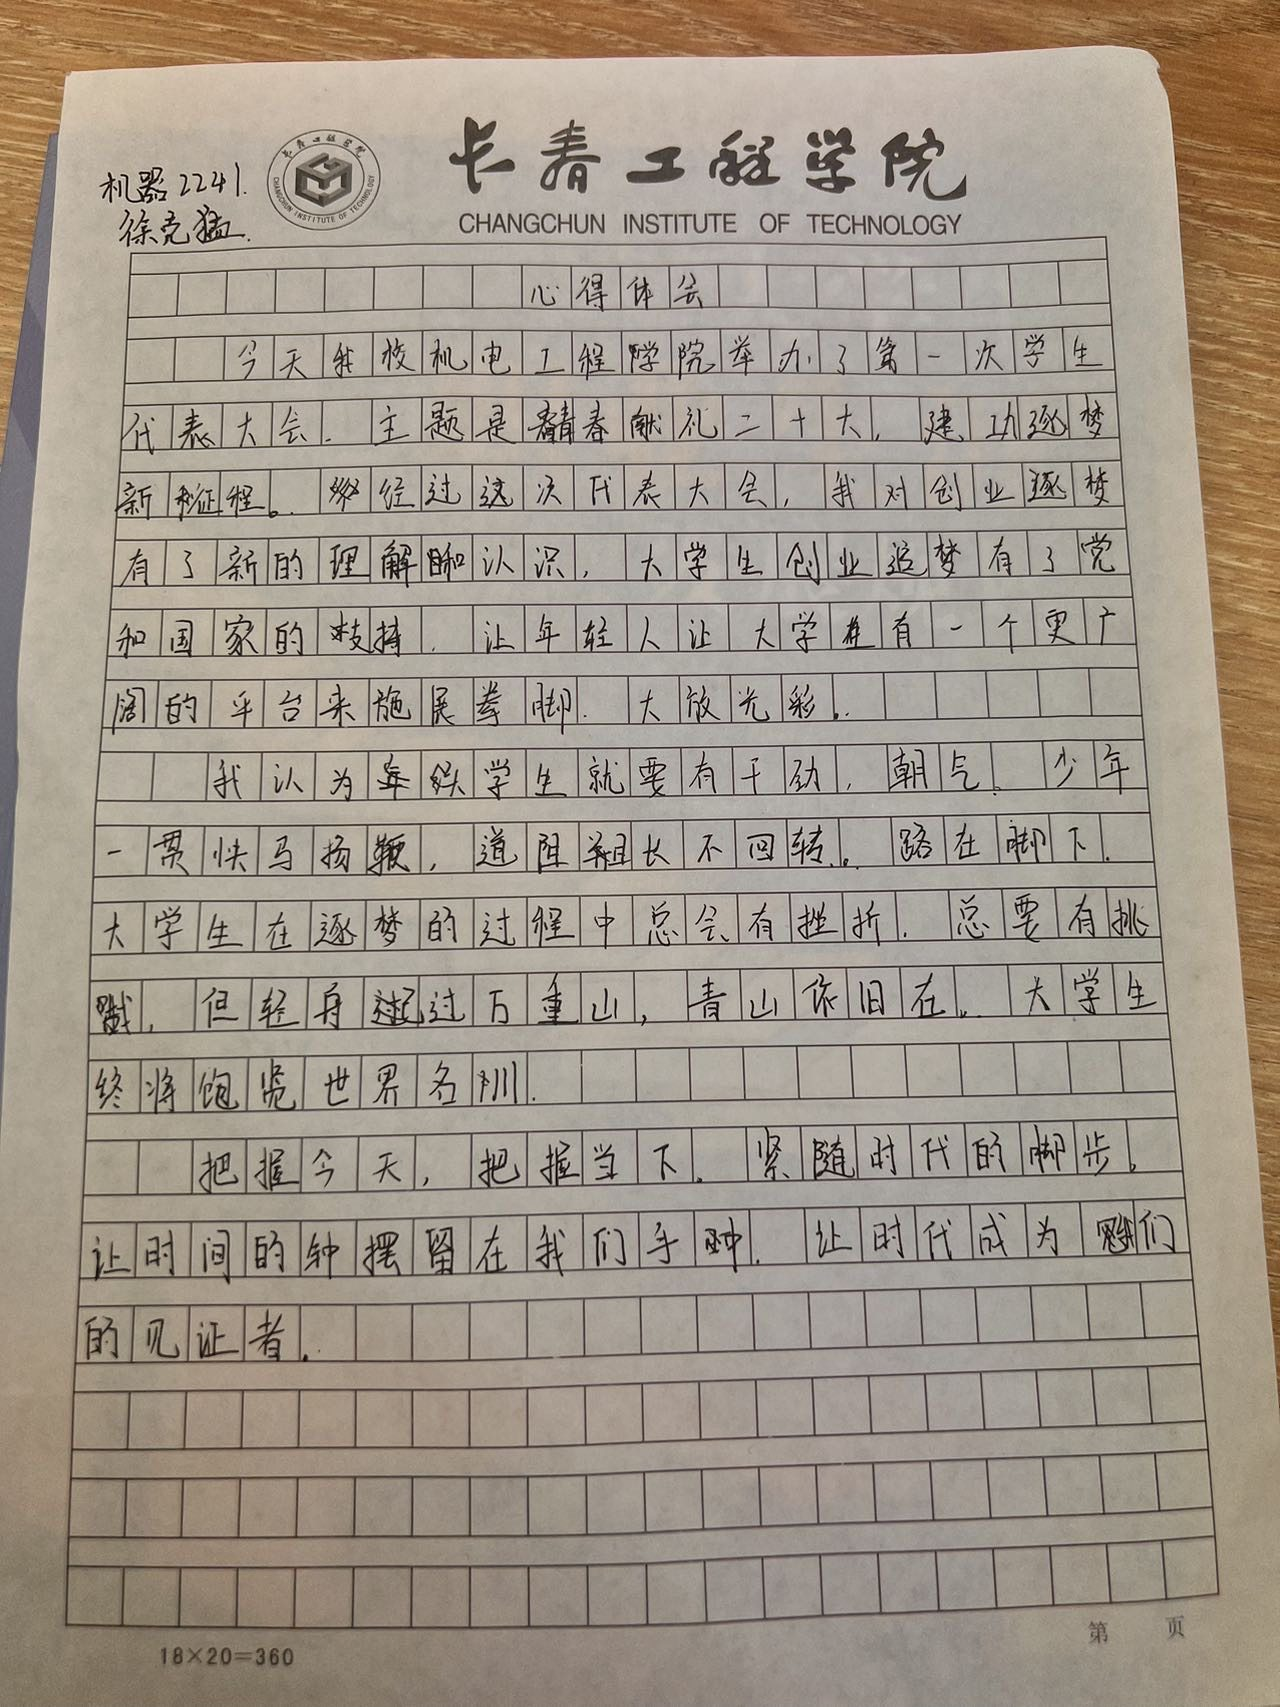 长春工程学院
CHANGCHUN INSTITUTE OF TECHNOLOGY
长春工程学院
CHANGCHUN INSTITUTE OF TECHNOLOGY
机器2241.
徐克猛.
心得体会
今天我校机电工程学院举办了第一次学生
代表大会.主题是青春献礼二十大,建功逐梦
新征程。经过这次代表大会,我对创业逐梦
有了新的理解和认识,大学生创业追梦有了党
和国家的支持.让年轻人让大学生有一个更广
阔的平台来施展拳脚.大放光彩.
我认为年级学生就要有干劲,朝气.少年
一贯快马扬鞭,道阻且长不回转.路在脚下.
大学生在逐梦的过程中总会有挫折.总要有挑
战.但轻舟越过万重山,青山依旧在.大学生
终将饱览世界名川.
把握今天,把握当下.紧随时代的脚步.
让时间的钟摆留在我们手中.让时代成为我们
的见证者.
18×20=360
第 页